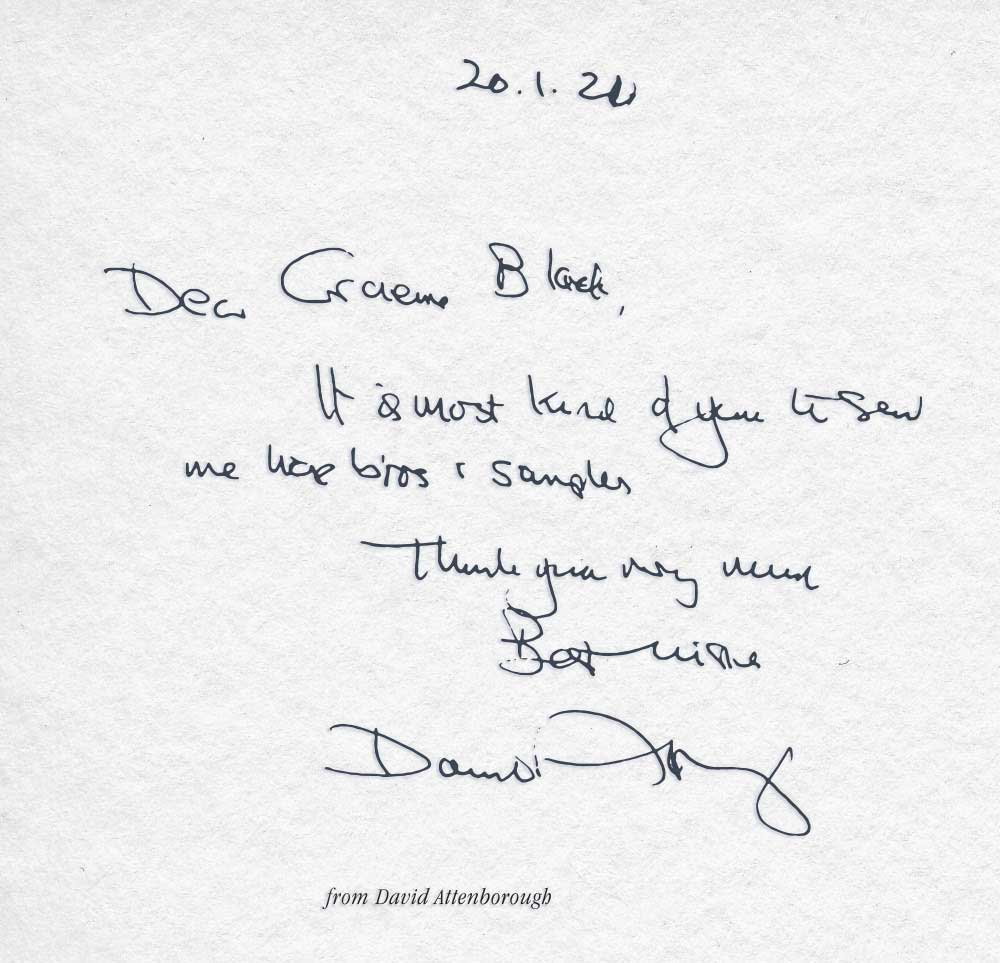 20.1.21
Dear Graeme Black,
It is most kind of you to send
me these bios & samples
Thank you very much
Best wishes
David
from David Attenborough